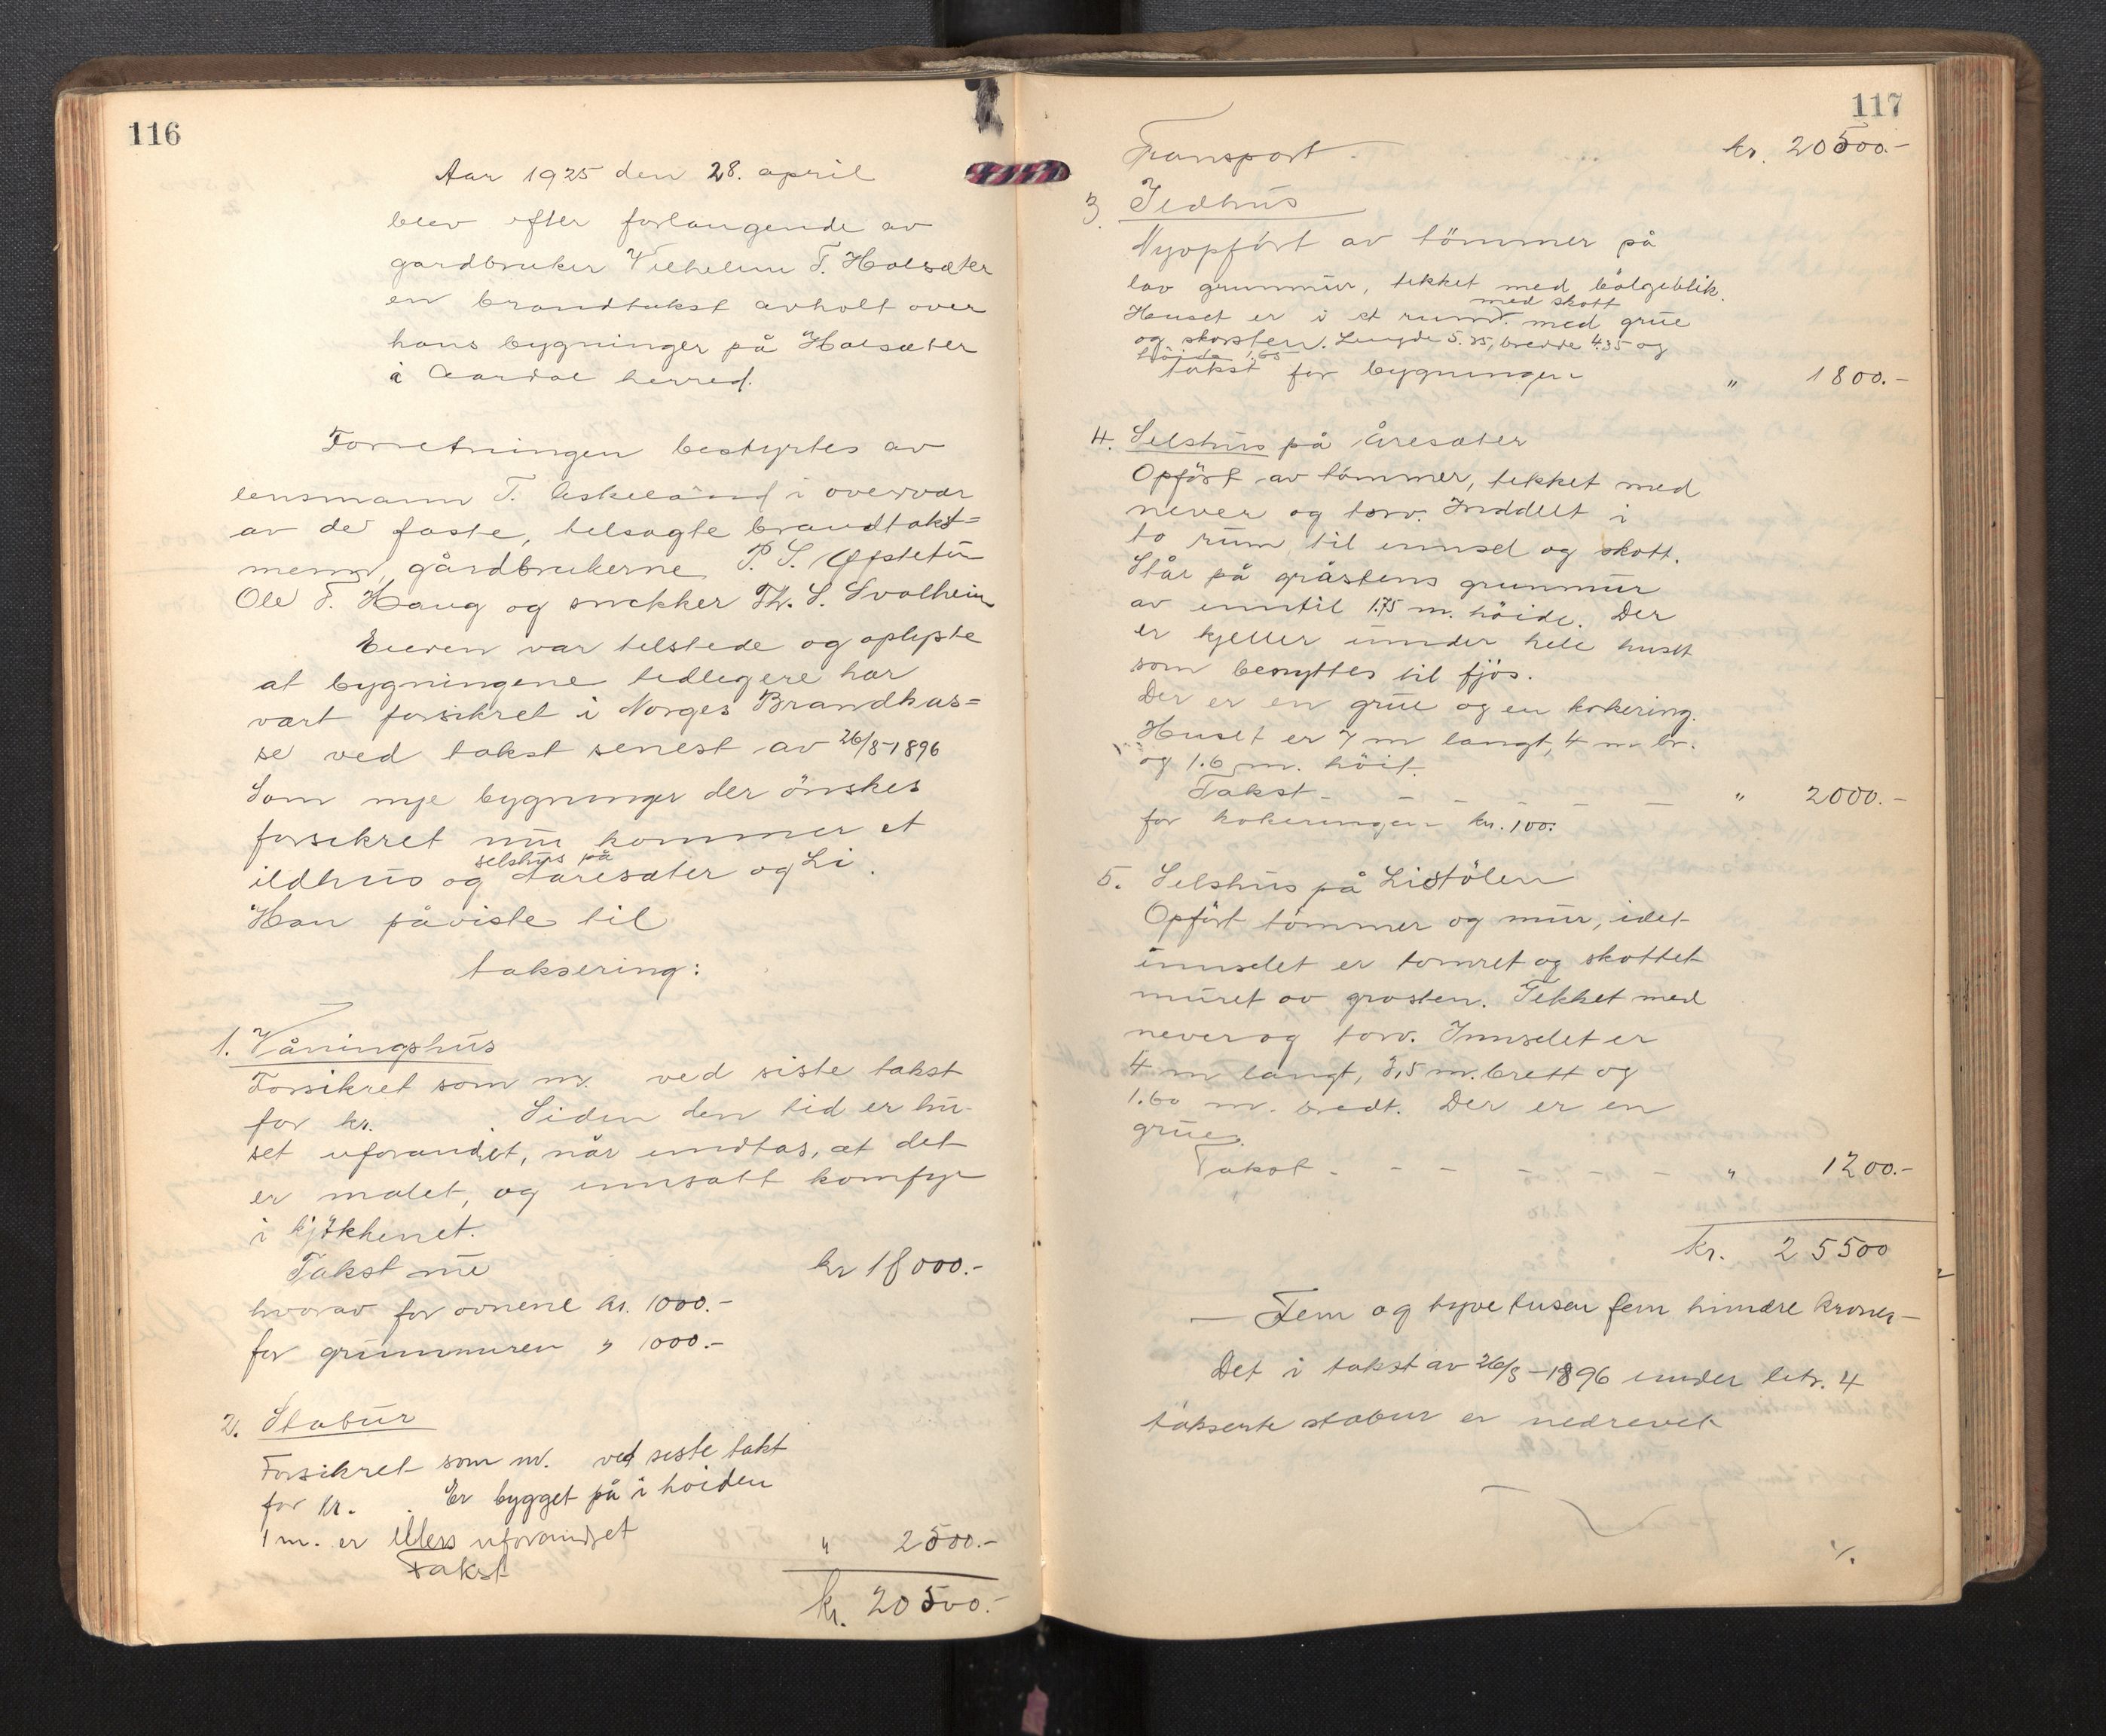 116
Aar 1925 den 28. april
blev efter forlangende av
gardbruker Vilhelm T. Holsæter
en brandtakst avholt over
hans bygninger på Holsæter
i Aardal herred.
Forretningen bestyrtes av
lensmann T. Eskeland i overvær
av de faste, tilsagte brandtakst=
menn, gårdbrukerne P. S. Øfstetun
Ole T. Haug og snekker Th. S. Svalheim
Eieren var tilstede og oplyste
at bygningene tidligere har
vært forsikret i Norges Brandkas=
se ved takst senest av 26/8-1896
Som nye bygninger der önskes
forsikret nu kommer et
ildhus og selshus på Aaresæter og Li.
Han påviste til
taksering:
1. Våningshus
Forsikret som nr. ved siste takst
for kr. Siden den tid er hu-
set uforandret, når undtas, at det
er malet, og innsatt komfyr
i kjökkenet.
Takst nu kr 18000.-
hvorav for ovnene kr. 1000.-
for grunnmuren " 1000.-
2. Stabur
Forsikret som nr. ved siste takt
for kr. . Er bygget på i höiden
1 m. er ellers uforandret
Takst " 2500.-
kr. 20500.-
117
Transport kr. 20500.-
3. Ildhus
Nyopfört av tömmer på
lav grunnmur, tekket med bölgeblik.
Huset er i et rum med skott med grue
og skorsten. Lengde 5.35, bredde 4.35 og
höide 1.65
takst for bygningen " 1800.-
4. Selshus på Åresæter
Opfört av tömmer, tekket med
never og torv. Inddelt i
to rum til innsel og skott.
Står på gråstens grunnmur
av inntil 1.75 m. höide. Der
er kjeller under hele huset
som benyttes til fjös.
Der er en grue og en kokering.
Huset er 7 m langt, 4 m br.
og 1.6 m. höit.
Takst - - - - - - " 2000.-
for kokeringen kr. 100:
5. Selshus på Listölen
Opfört tömmer og mur, idet
innselet er tömret og skottet
muret av gråsten. Tekket med
never og torv. Innselet er
4 m langt, 3,5 m. brett og
1.60 m. bredt. Der er en
grue.
Takst - - - - - - " 1200.-
kr. 25500
— Fem og tyve tusen fem hundre kroner —
Det i takst av 26/8-1896 under litr. 4
takserte stabur er nedrevet